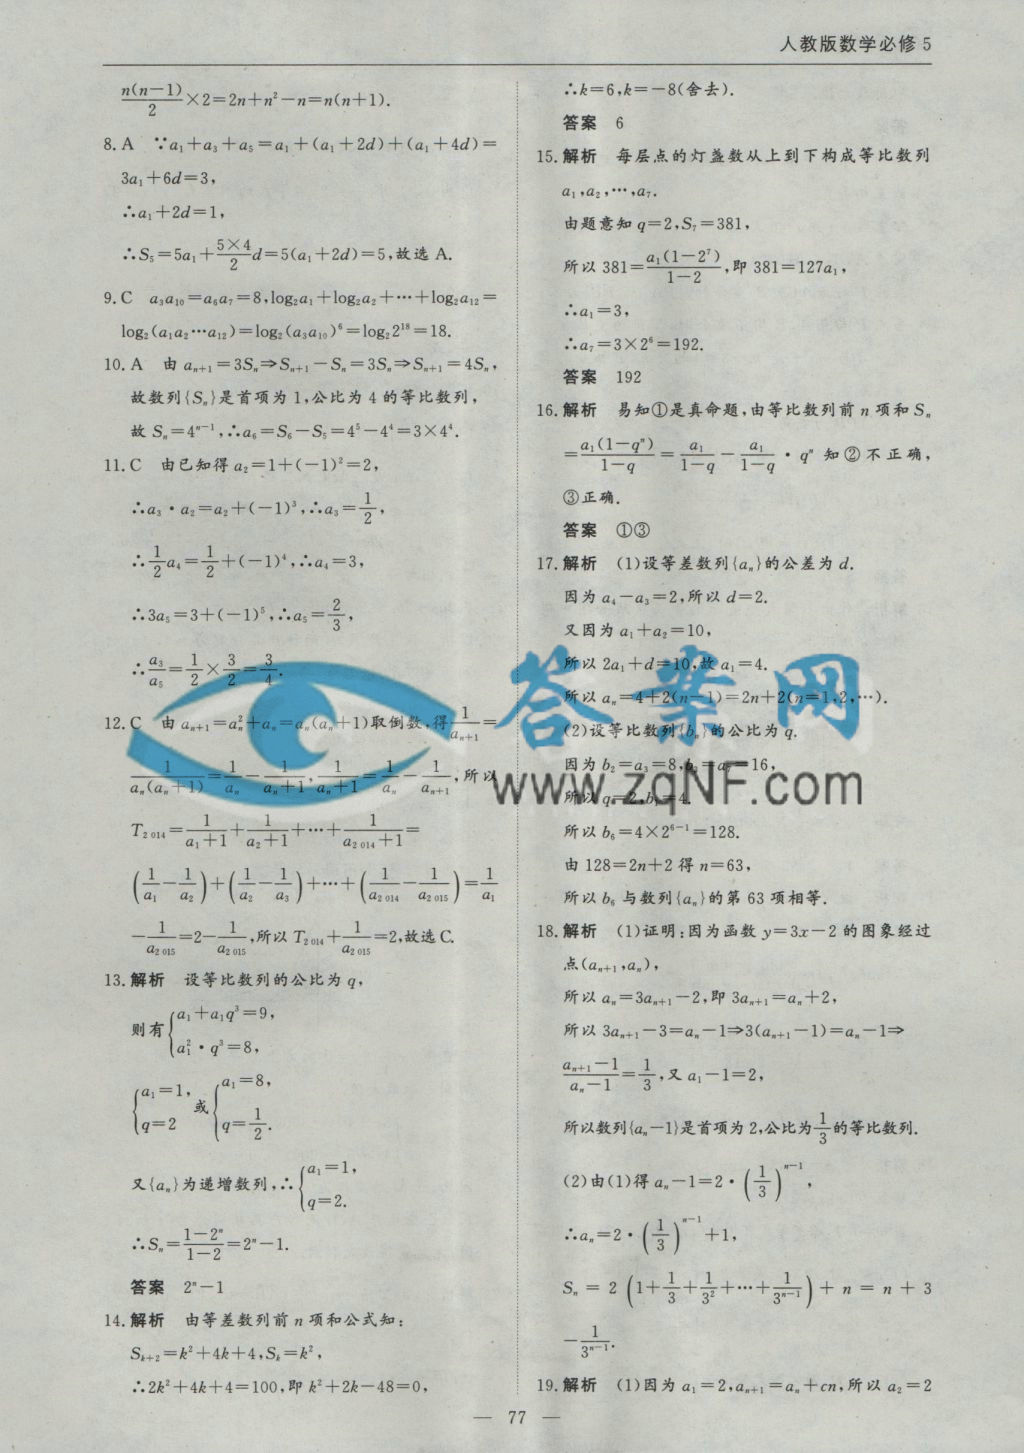 人教版数学必修 5
n(n−1)/2×2=2n+n²−n=n(n+1).
8. A ∵a₁+a₃+a₅=a₁+(a₁+2d)+(a₁+4d)=
3a₁+6d=3,
∴a₁+2d=1,
∴S₅=5a₁+5×4/2 d=5(a₁+2d)=5,故选 A.
9. C a₃a₁₀=a₆a₇=8,log₂a₁+log₂a₂+⋯+log₂a₁₂=
log₂(a₁a₂⋯a₁₂)=log₂(a₃a₁₀)⁶=log₂2¹⁸=18.
10. A 由 aₙ₊₁=3Sₙ⇒Sₙ₊₁−Sₙ=3Sₙ⇒Sₙ₊₁=4Sₙ,
故数列{Sₙ}是首项为 1,公比为 4 的等比数列,
故 Sₙ=4ⁿ⁻¹,∴a₆=S₆−S₅=4⁵−4⁴=3×4⁴.
11. C 由已知得 a₂=1+(−1)²=2,
∴a₃·a₂=a₂+(−1)³,∴a₃=1/2,
∴1/2 a₄=1/2+(−1)⁴,∴a₄=3,
∴3a₅=3+(−1)⁵,∴a₅=2/3,
∴a₃/a₅=1/2×3/2=3/4.
12. C 由 aₙ₊₁=aₙ²+aₙ=aₙ(aₙ+1)取倒数,得1/aₙ₊₁=
1/(aₙ(aₙ+1))=1/aₙ−1/(aₙ+1),1/(aₙ+1)=1/aₙ−1/aₙ₊₁,所以
T₂₀₁₄=1/(a₁+1)+1/(a₂+1)+⋯+1/(a₂₀₁₄+1)=
(1/a₁−1/a₂)+(1/a₂−1/a₃)+⋯+(1/a₂₀₁₄−1/a₂₀₁₅)=1/a₁
−1/a₂₀₁₅=2−1/a₂₀₁₅,所以 T₂₀₁₄+1/a₂₀₁₅=2,故选 C.
13. 解析 设等比数列的公比为 q,
则有{a₁+a₁q³=9,
a₁²·q³=8,
{a₁=1, q=2 或{a₁=8, q=1/2.
又{aₙ}为递增数列,∴{a₁=1, q=2.
∴Sₙ=(1−2ⁿ)/(1−2)=2ⁿ−1.
答案 2ⁿ−1
14. 解析 由等差数列前 n 项和公式知:
Sₖ₊₂=k²+4k+4,Sₖ=k²,
∴2k²+4k+4=100,即 k²+2k−48=0,
∴k=6,k=−8(舍去).
答案 6
15. 解析 每层点的灯盏数从上到下构成等比数列
a₁,a₂,⋯,a₇.
由题意知 q=2,S₇=381,
所以 381=a₁(1−2⁷)/(1−2),即 381=127a₁,
∴a₁=3,
∴a₇=3×2⁶=192.
答案 192
16. 解析 易知①是真命题,由等比数列前 n 项和 Sₙ
=a₁(1−qⁿ)/(1−q)=a₁/(1−q)−a₁/(1−q)·qⁿ 知②不正确,
③正确.
答案 ①③
17. 解析 (1)设等差数列{aₙ}的公差为 d.
因为 a₄−a₃=2,所以 d=2.
又因为 a₁+a₂=10,
所以 2a₁+d=10,故 a₁=4.
所以 aₙ=4+2(n−1)=2n+2(n=1,2,⋯).
(2)设等比数列{bₙ}的公比为 q.
因为 b₂=a₃=8,b₃=a₇=16,
所以 q=2,b₁=4.
所以 b₆=4×2⁶⁻¹=128.
由 128=2n+2 得 n=63,
所以 b₆ 与数列{aₙ}的第 63 项相等.
18. 解析 (1)证明:因为函数 y=3x−2 的图象经过
点(aₙ₊₁,aₙ),
所以 aₙ=3aₙ₊₁−2,即 3aₙ₊₁=aₙ+2,
所以 3aₙ₊₁−3=aₙ−1⇒3(aₙ₊₁−1)=aₙ−1⇒
(aₙ₊₁−1)/(aₙ−1)=1/3,又 a₁−1=2,
所以数列{aₙ−1}是首项为 2,公比为1/3的等比数列.
(2)由(1)得 aₙ−1=2·(1/3)ⁿ⁻¹,
∴aₙ=2·(1/3)ⁿ⁻¹+1,
Sₙ=2(1+1/3+1/3²+⋯+1/3ⁿ⁻¹)+n=n+3
−1/3ⁿ⁻¹.
19. 解析 (1)因为 a₁=2,aₙ₊₁=aₙ+cn,所以 a₂=2
— 77 —
答案网
www.zqNF.com